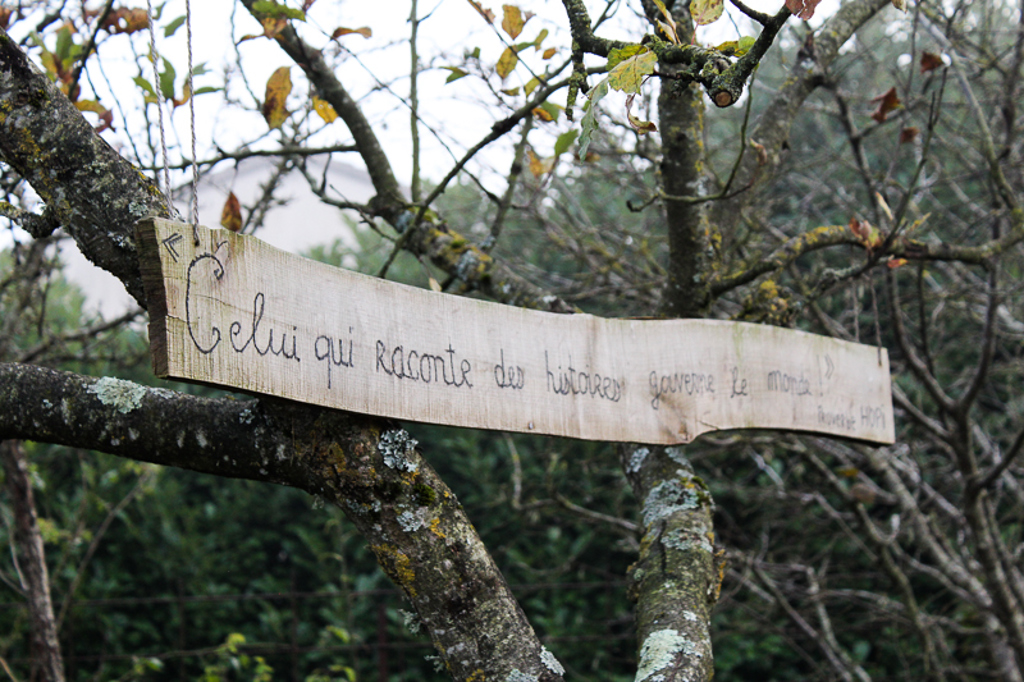 « Celui qui raconte des histoires gouverne le monde ! »
Proverbe HOPI